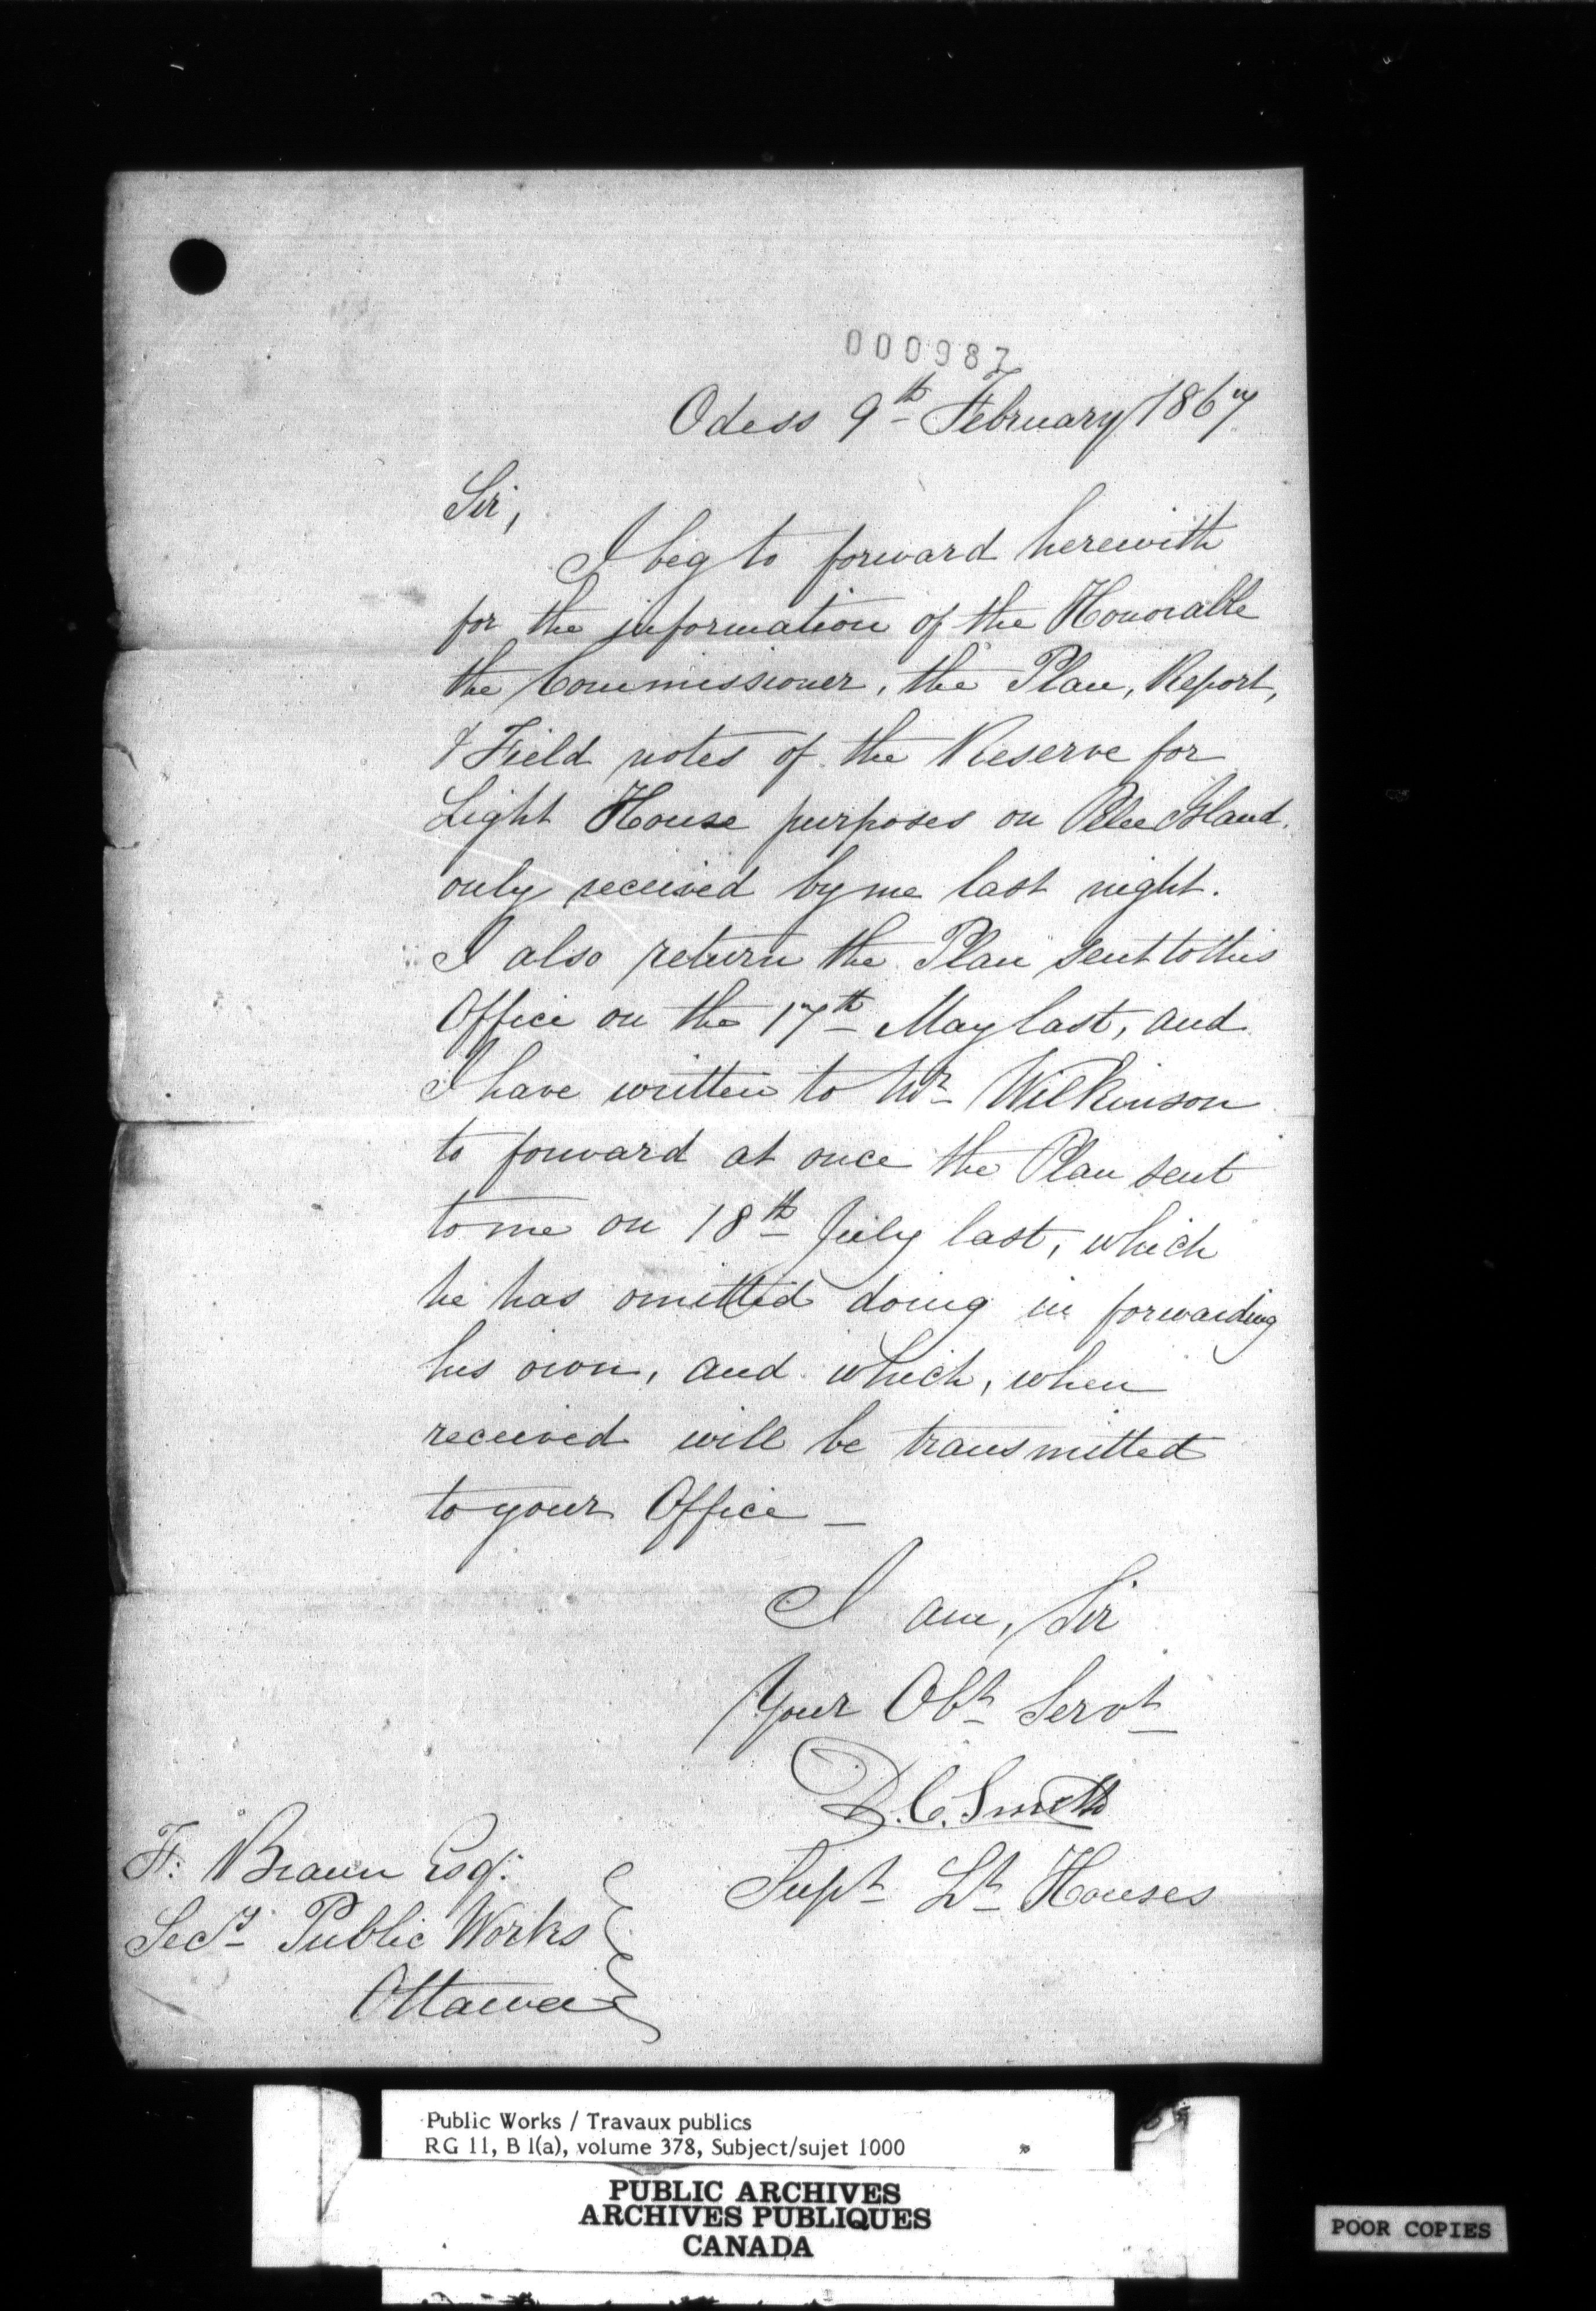 000987
Odess 9th February 1867
Sir,
I beg to forward herewith
for the information of the Honorable
the Commissioner, the Plan, Report,
& Field notes of the Reserve for
Light House purposes on Pelee Island.
only received by me last night.
I also return the Plan sent to this
Office on the 17th May last, and
I have written to Mr Wilkinson
to forward at once the Plan sent
to me on 18th July last, which
he has omitted doing in forwarding
his own, and which, when
received will be transmitted
to your Office —
I am, Sir
Your Obt Servt
D. C. Smith
Supt Lt Houses
F: Braun Esq:
Secy Public Works
Ottawa
Public Works / Travaux publics
RG 11, B 1(a), volume 378, Subject/sujet 1000
PUBLIC ARCHIVES
ARCHIVES PUBLIQUES
CANADA
POOR COPIES